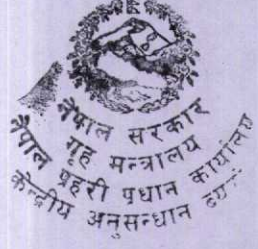 नेपाल सरकार
गृह मन्त्रालय
नेपाल प्रहरी प्रधान कार्यालय
केन्द्रीय अनुसन्धान ब्यूरो